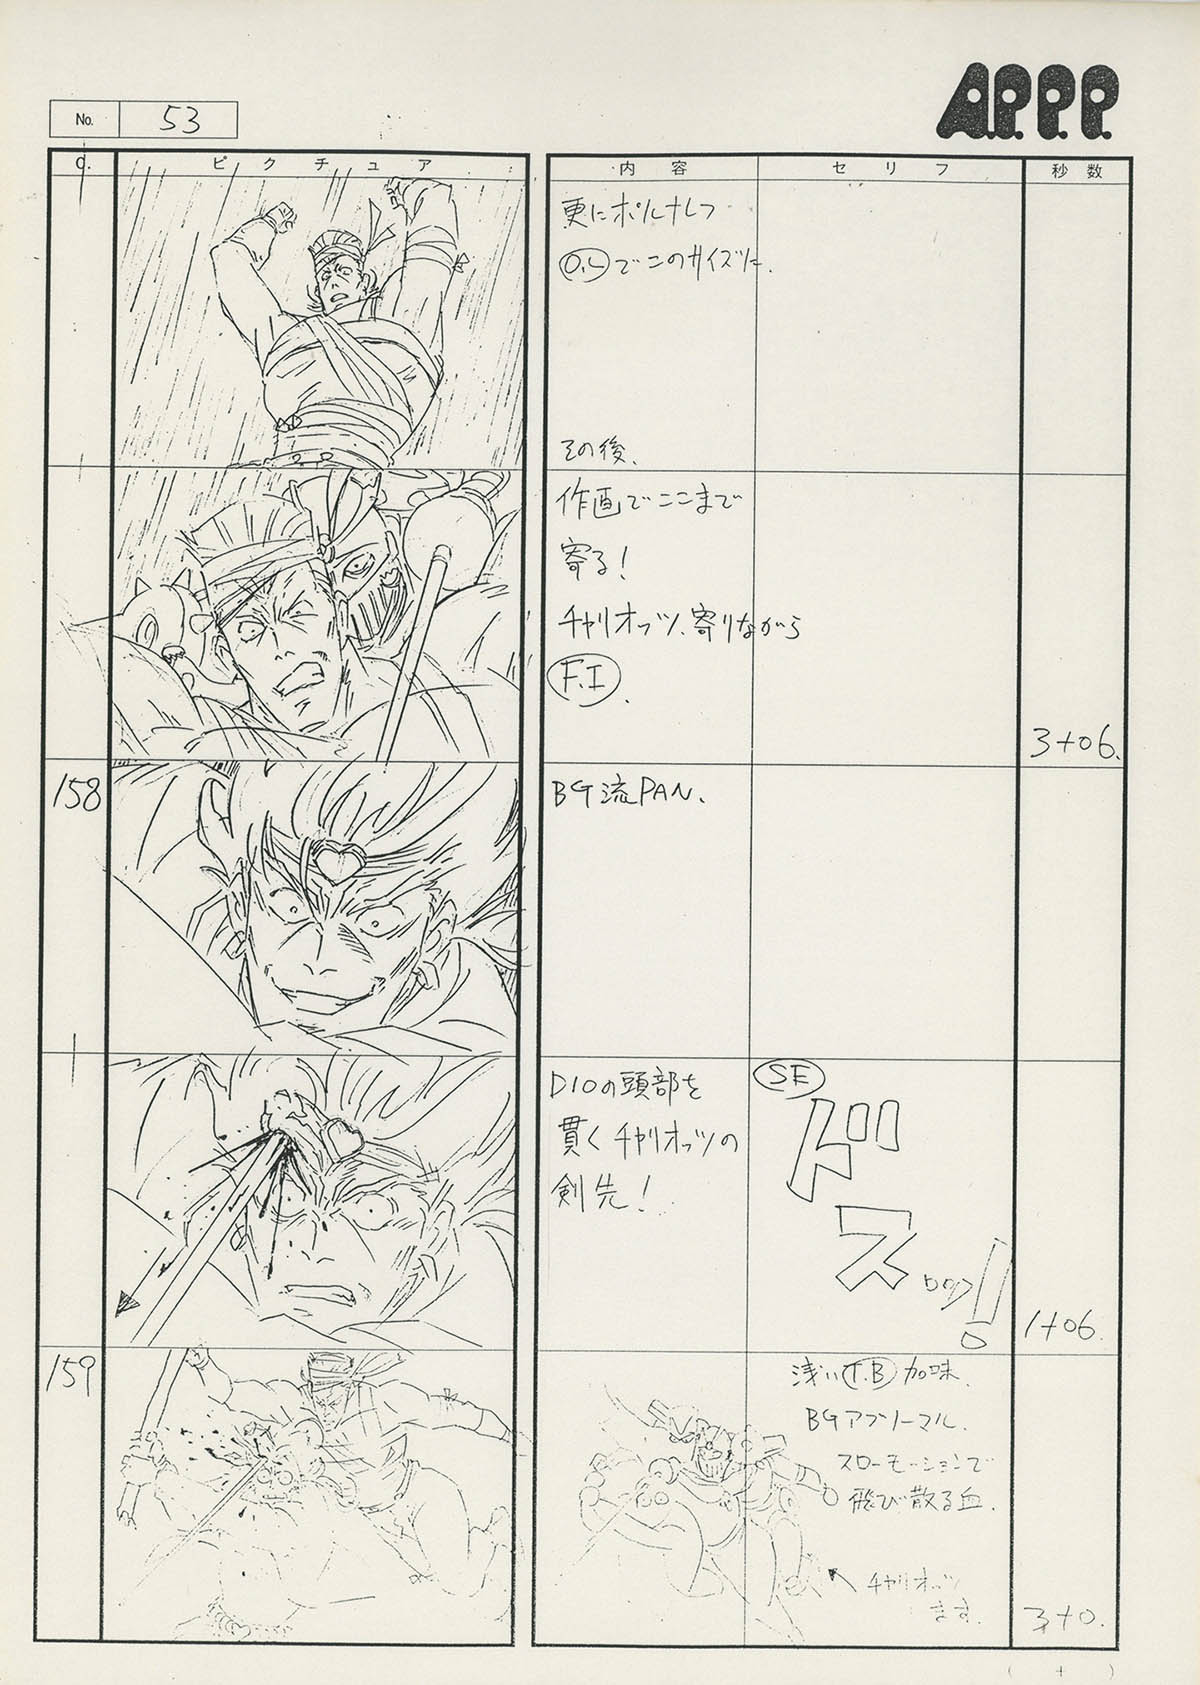 A.P.P.P.
No. 53
C. ピクチュア 内容 セリフ 秒数
更にポルナレフ
O.L でこのサイズに.
その後.
作画でここまで
寄る!
チャリオッツ、寄りながら
F.I .
3+06.
158
BG流PAN.
DIOの頭部を
貫くチャリオッツの
剣先!
SE
ドス
ロッ!!
1+06.
159
浅い T.B 加味.
BGアブノーマル.
スローモーションで
飛び散る血.
チャリオッツ
ます.
3+0.
( + )